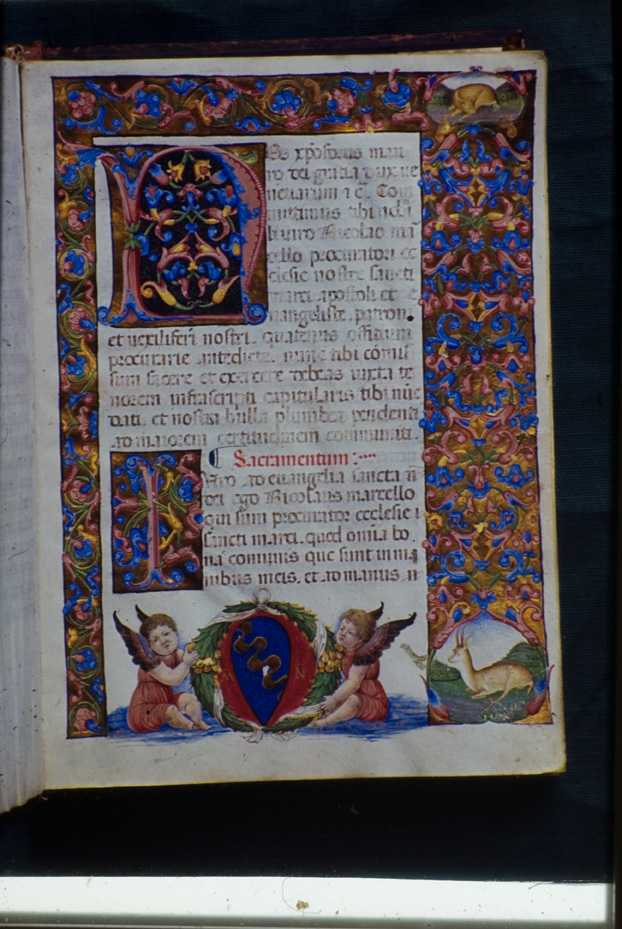 Nos xpoforus mau
ro dei gratia dux ue
netiarum ⁊ c̄. Com
mittimus tibi nobili
uiro Nicolao mar
cello procuratori ec
clesie nostre sancti
marci apostoli et e
uangeliste, patroni
et uexiliferi nostri, quatenus officium
procuratie antedicte, nunc tibi cōmis
sum facere et exercere debeas iuxta te
norem infrascripti capitularis tibi nūc
dati, et nostra bulla plumbea pendenti
ad maiorem certitudinem communiti.
Sacramentum :
Iuro ad euangelia sancta
dei ego Nicolaus marcello
qui sum procurator ecclesie
sancti marci. quod omnia bo
na comunis que sunt in ma
nibus meis, et ad manus
N